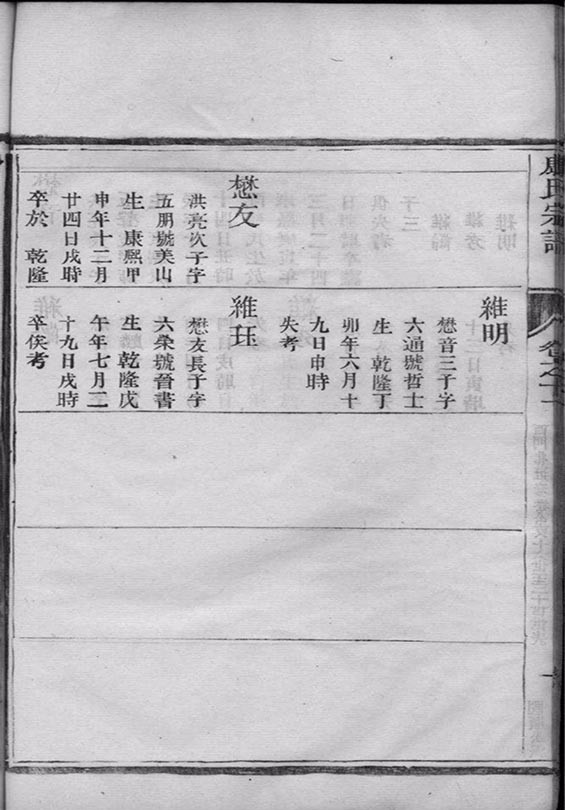 氏宗譜
卷之十二
懋友
洪亮次子字
五朋號美山
生 康熙甲
申年十二月
廿四日戌時
卒於 乾隆
維明
懋音三子字
六通號哲士
生 乾隆丁
卯年六月十
九日申時
失考
維珏
懋友長子字
六榮號晉書
生 乾隆戊
午年七月二
十九日戌時
卒俟考